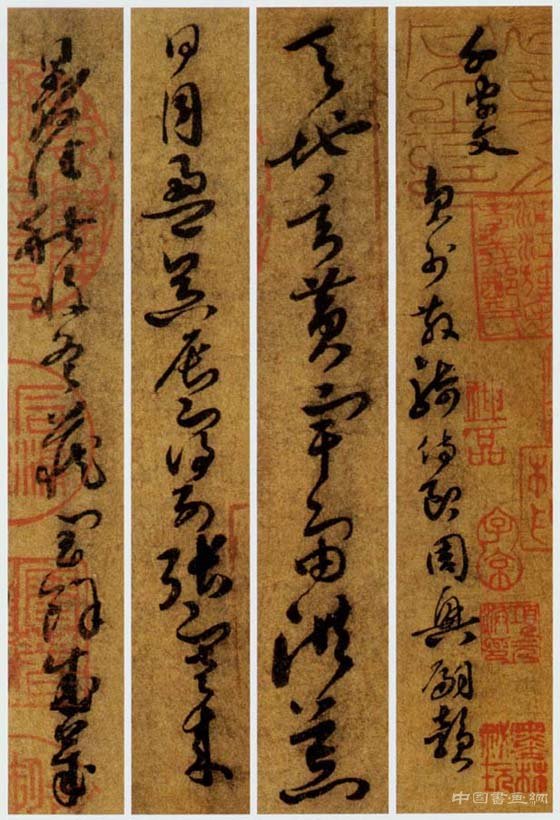 千字文
員外散騎侍郎周興嗣韻
天地玄黃宇宙洪荒
日月盈昃辰宿列張寒來
暑往秋收冬藏閏餘成歲
神品
子京
中国書画網